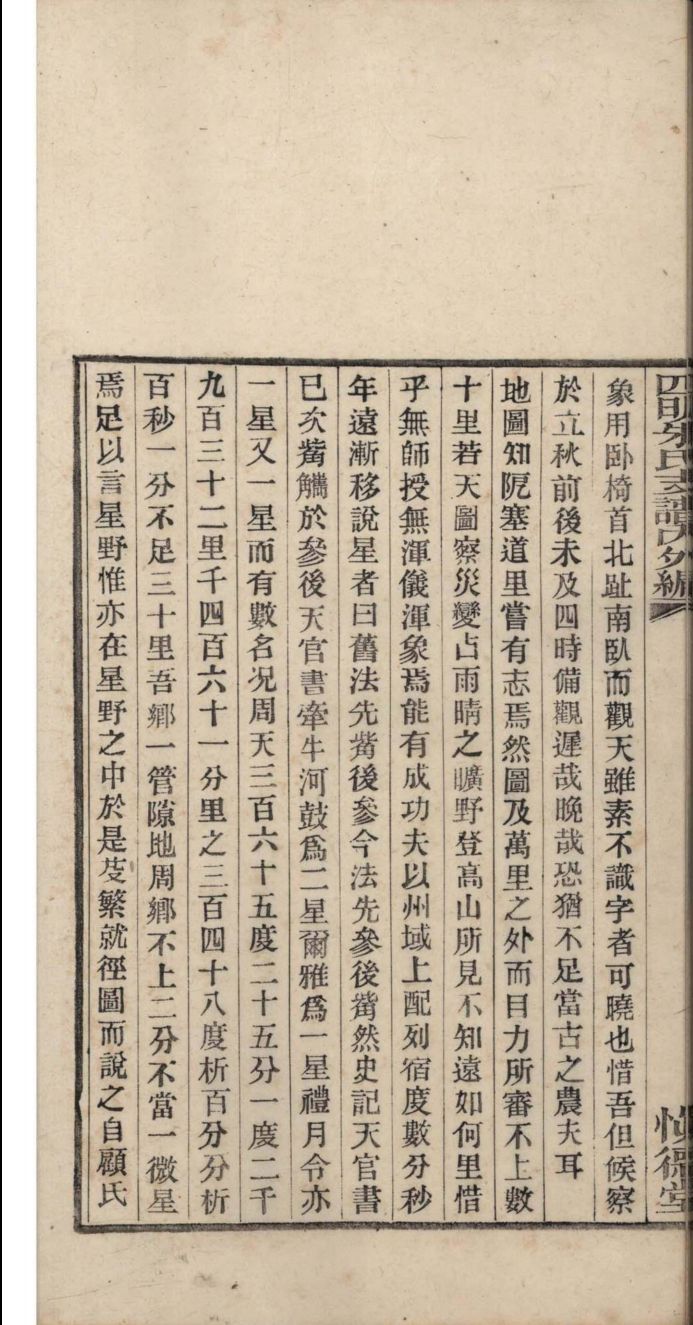 四明朱氏支譜內外編
慎德堂
象用卧椅首北趾南臥而觀天雖素不識字者可曉也惜吾但候察
於立秋前後未及四時備觀遲哉晚哉恐猶不足當古之農夫耳
地圖知阨塞道里嘗有志焉然圖及萬里之外而目力所審不上數
十里若天圖察災變占雨晴之曠野登高山所見不知遠如何里惜
乎無師授無渾儀渾象焉能有成功夫以州域上配列宿度數分秒
年遠漸移說星者曰舊法先觜後參今法先參後觜然史記天官書
已次觜觿於參後天官書牽牛河鼓爲二星爾雅爲一星禮月令亦
一星又一星而有數名况周天三百六十五度二十五分一度二千
九百三十二里千四百六十一分里之三百四十八度析百分分析
百秒一分不足三十里吾鄉一管隙地周鄉不上二分不當一微星
焉足以言星野惟亦在星野之中於是芟繁就徑圖而說之自顧氏